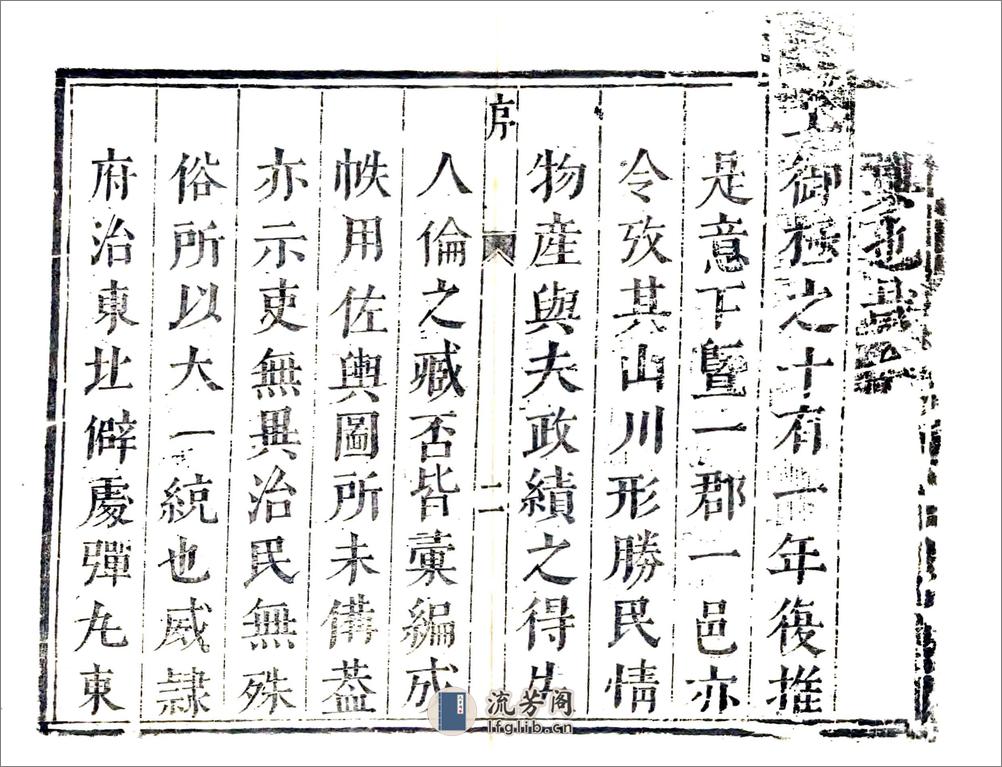 上御極之十有一年復推
是意下暨一郡一邑亦
令攷其山川形勝民情
物產與夫政績之得失
序
二
人倫之臧否皆彙編成
帙用佐輿圖所未備葢
亦示吏無異治民無殊
俗所以大一統也威隷
府治東北僻處彈丸東
流芳阁
lfglib.cn